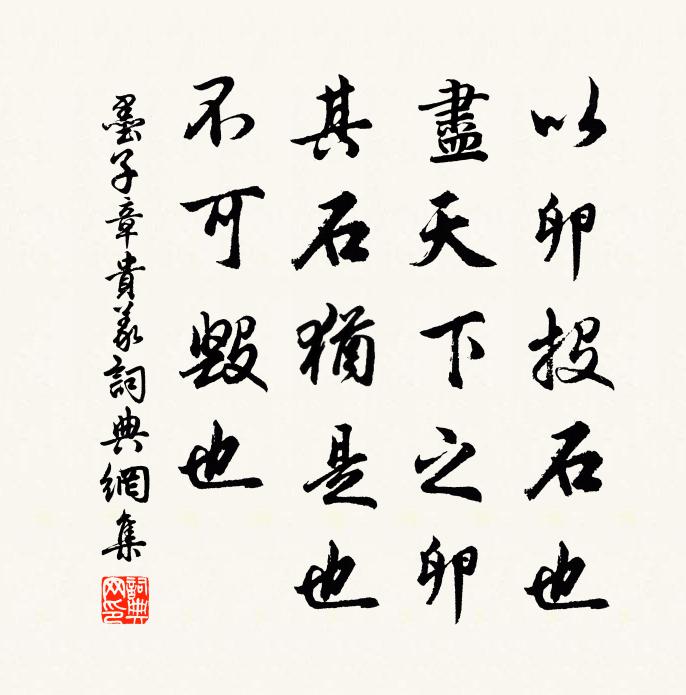 以卵投石也
盡天下之卵
其石猶是也
不可毀也
墨子章貴義詞典網集
詞典網印